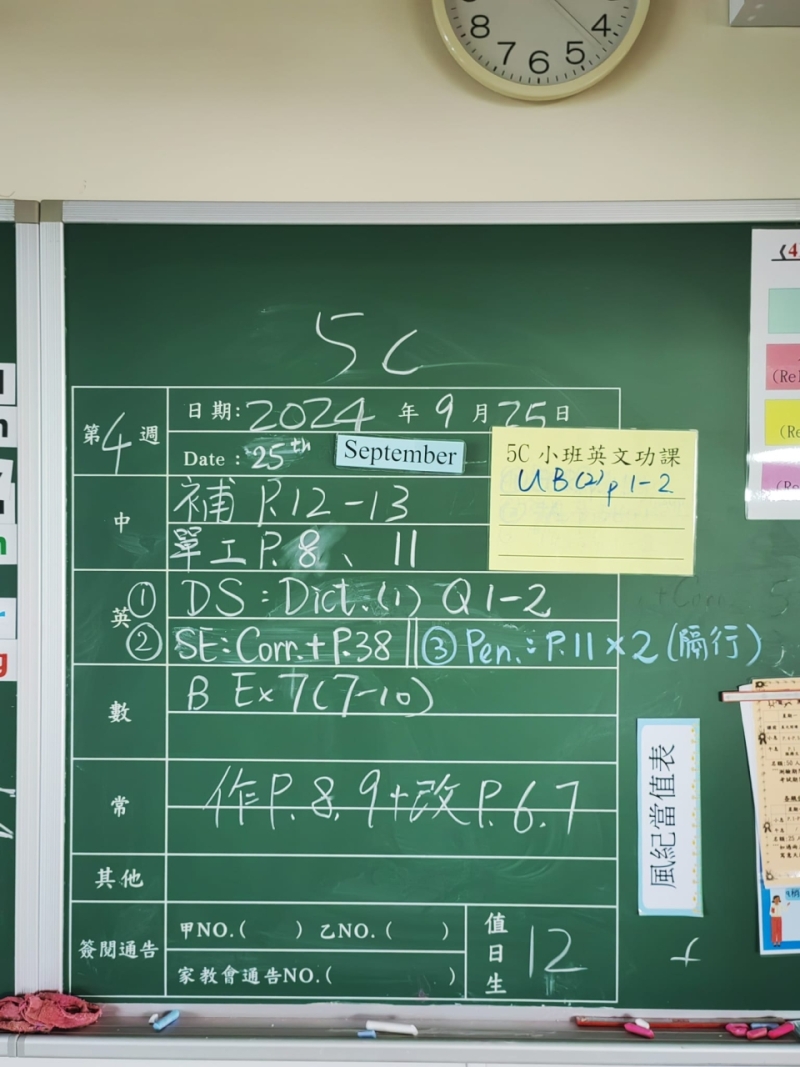 8 7 6 5 4
5C
第4週
日期: 2024 年 9 月 25 日
Date : 25th September
5C 小班英文功課
UB(2) p 1-2
中
補 P.12-13
單工 P.8、11
英
① DS : Dict.(1) Q1-2
② SE: Corr.+ P.38 ③ Pen.: P.11×2 (隔行)
數
B Ex 7(7-10)
常
作P.8.9+改P.6.7
其他
簽閱通告
甲NO.( ) 乙NO.( )
家教會通告NO.( )
值日生
12
風紀當值表